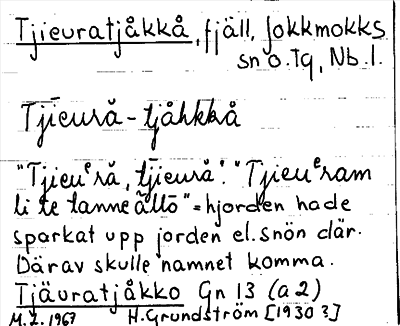 Tjieuratjåkkå, fjäll, Jokkmokks
sn o. Tq, Nb. l.
Tjīeurå̆ - tjåhkkå
"Tjieuᵉrå̆, tjīeurå̆". "Tjieuᵉram
li te tanne ällō" = hjorden hade
sparkat upp jorden el. snön där.
Därav skulle namnet komma.
Tjäuratjåkko Gn 13 (a 2)
M.Z. 1967 H. Grundström [1930?]